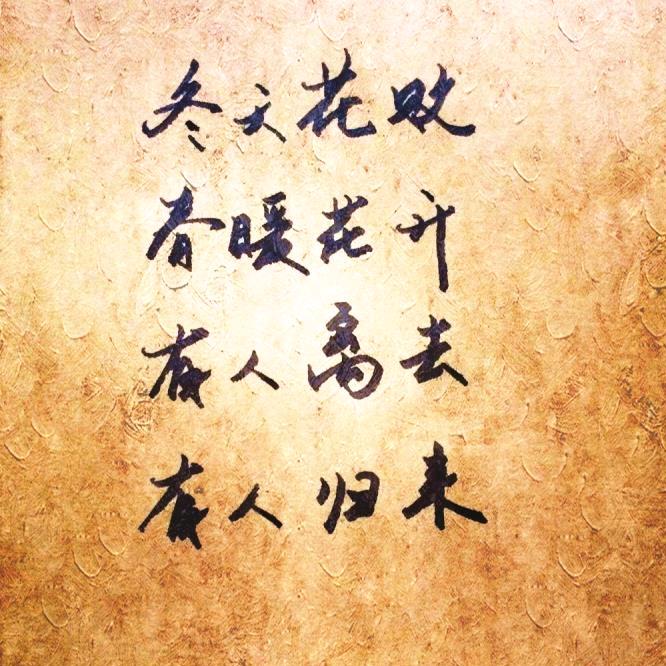 冬天花败
春暖花开
有人离去
有人归来